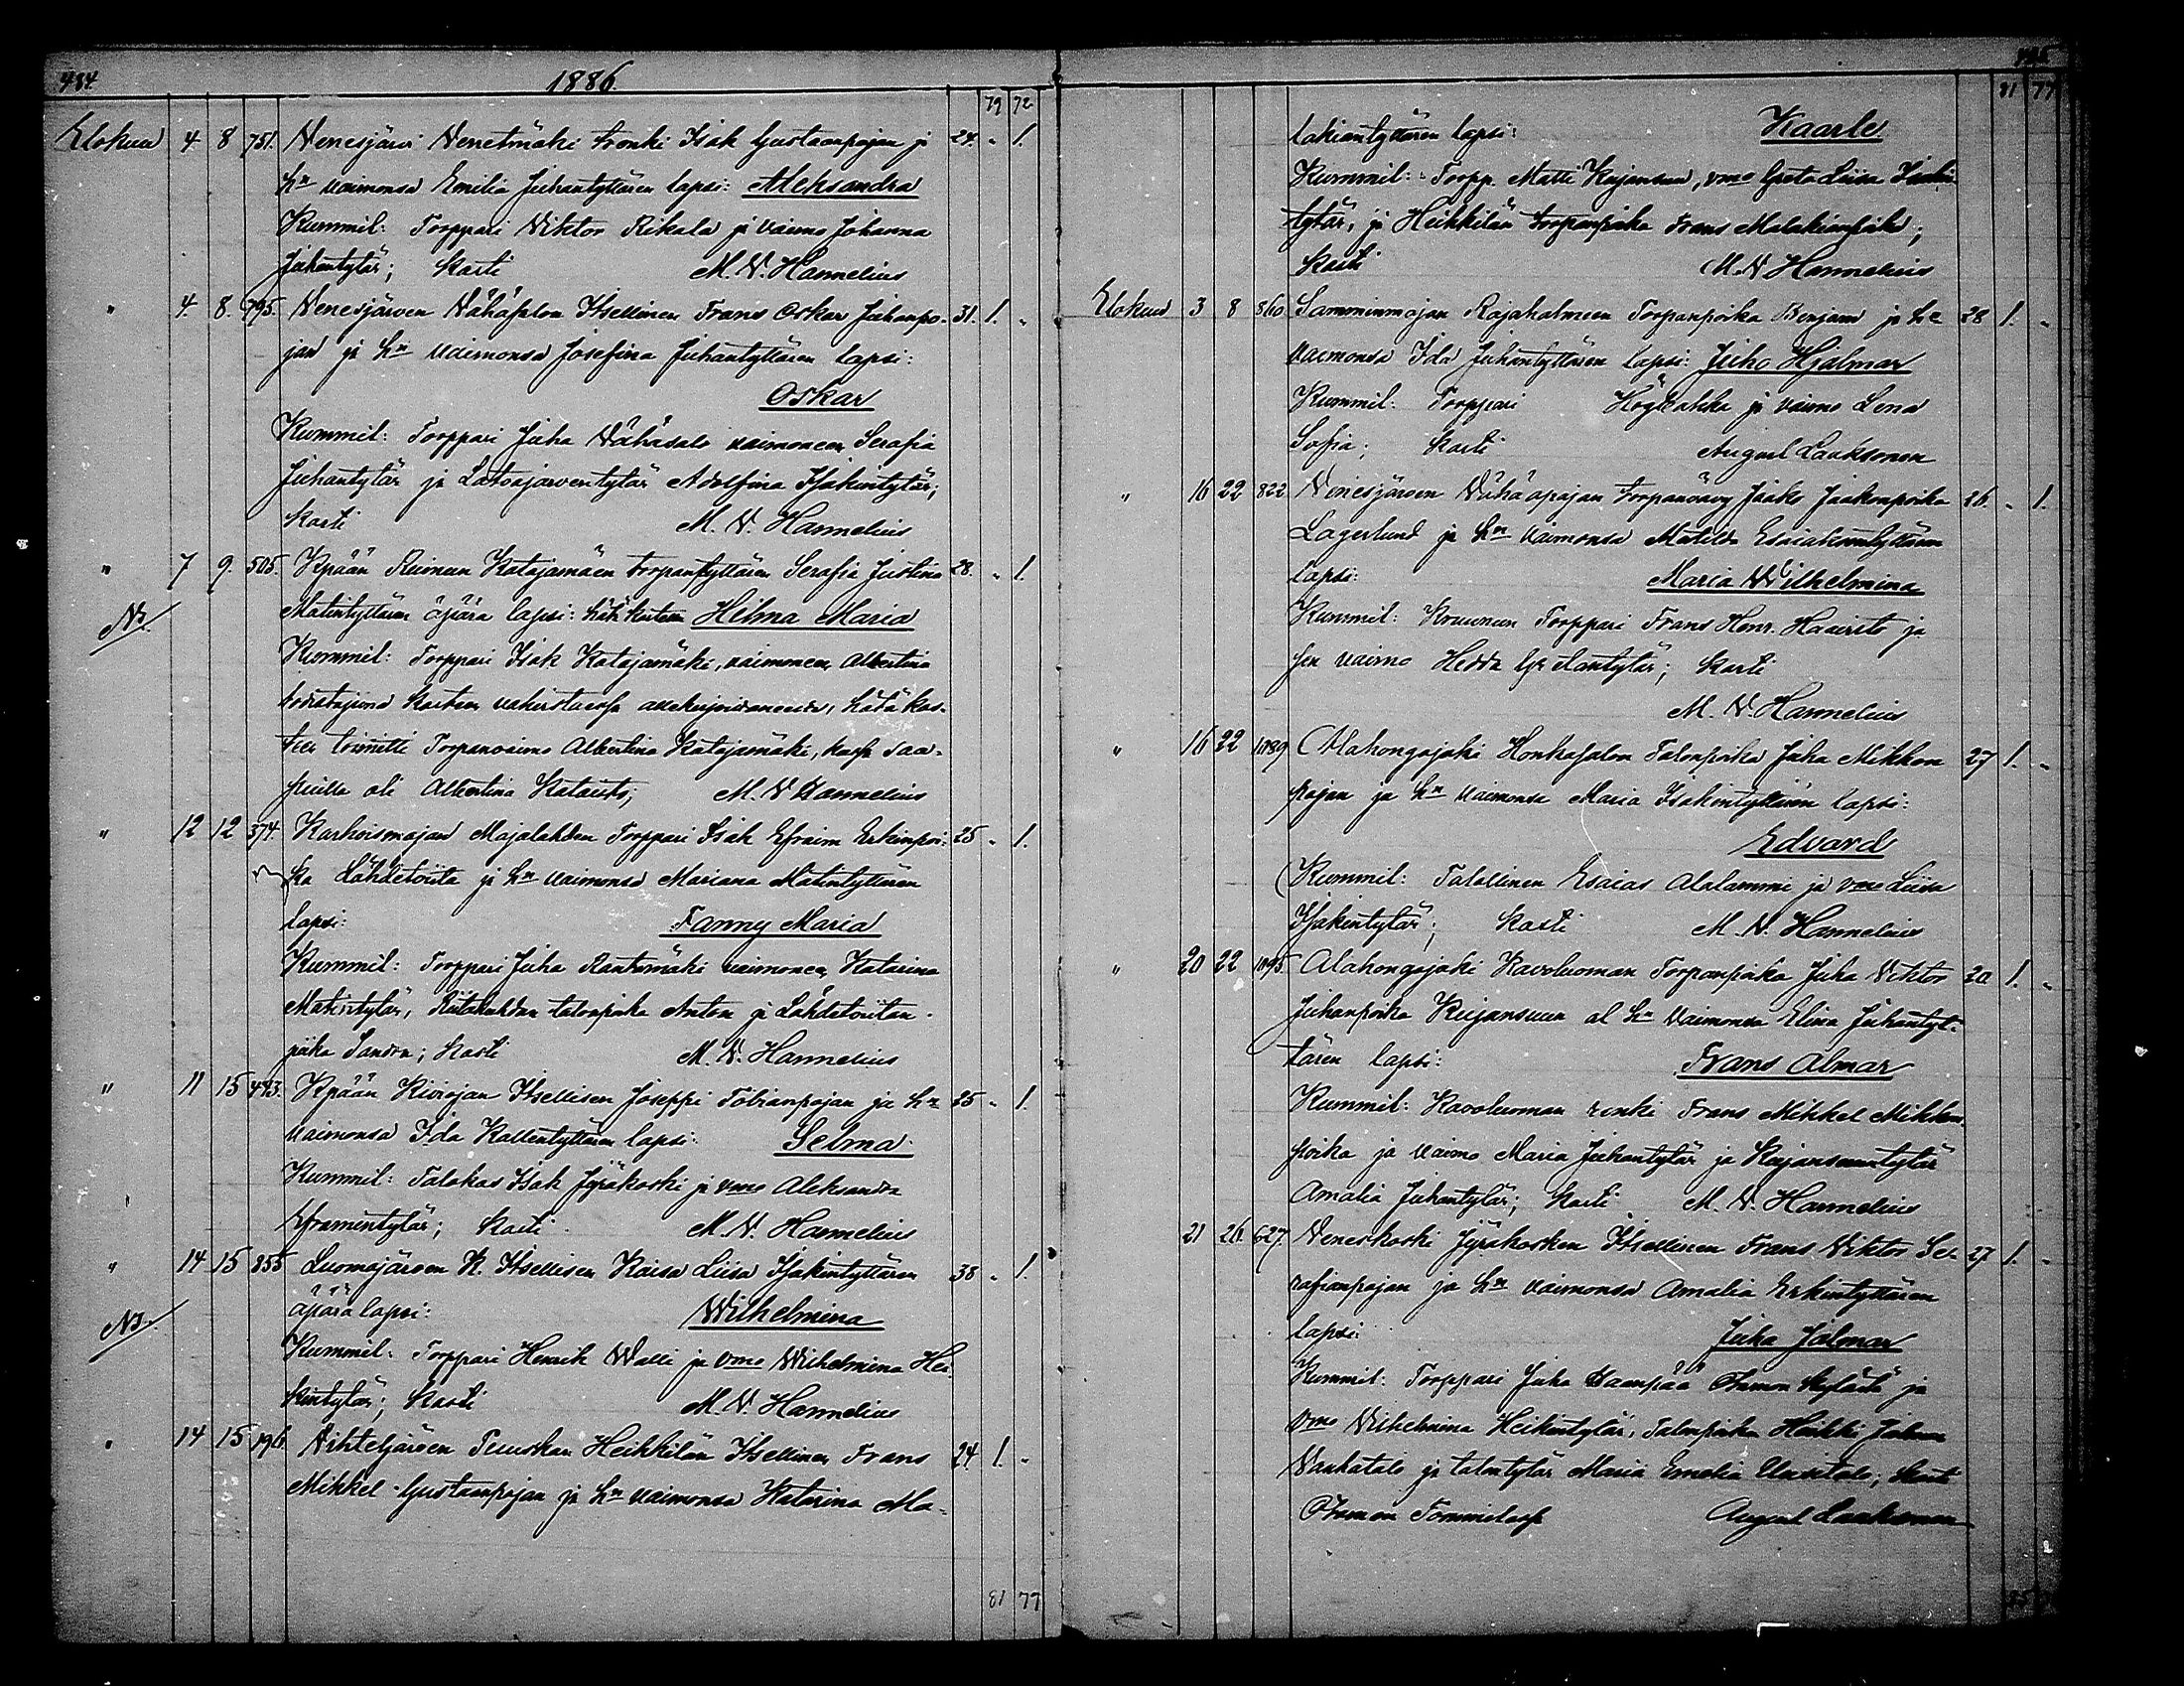 484.
1886.
79 72
Elokuu 4 8 751. Venesjärvi Venetmäki Isak Gustaanpojan ja 24. " 1.
hn vaimonsa Emilia Juhantyttären lapsi: Aleksandra
Kummil: Torppari Viktor Rikala ja vaimo Johanna
Juhantytär; Kasti M. V. Hannelius
" 4. 8. 795. Venesjärven Vähäsalon Itsellinen Frans Oskar Juhanpo- 31. 1. "
jan ja hn vaimonsa Josefina Juhantyttären lapsi:
Oskar
Kummil: Torppari Juha Vähäsalo vaimoneen Serafia
Juhantytär ja Latoajärventytär Adolfina Isakintytär;
Kasti M. V. Hannelius
" 7 9. 505. Kpään Katajamäen torpantyttären Serafia Justina 28. " 1.
Matintyttären äpärä lapsi: hätäkasteen Hilma Maria
Kummil: Torppari Isak Katajamäki, vaimoneen Albertina
todistajina kasteen allekirjoittaneelta, hätä kas-
teen toimitti Torpanvaimo Albertina Katajamäki, saa-
puilla oli Albertina Kataisto; M. V. Hannelius
" 12 12 374. Karhoismajan Majalahden Torppari Isak Efraim Erkinpoi- 25 " 1.
ka Lähdetoita ja hn vaimonsa Mariana Matintyttären
lapsi: Fanny Maria
Kummil: Torppari Juha Rantamäki vaimoneen Katarina
Matintytär, talonpoika Anton ja Lähdetoitan
piika Sandra; Kasti M. V. Hannelius
" 11 15 493. Kpään Kiviojan Itsellisen Joseppi Tobianpojan ja hn 25 " 1.
vaimonsa Ida Kallentyttären lapsi: Selma
Kummil: Talokas Isak Jyräkoski ja vmo Aleksandra
Eframintytär; Kasti M. V. Hannelius
" 14 15 855 Luomajärven K. Itsellisen Kaisa Liisa Isakintyttären 38 " 1.
äpärä lapsi: Wilhelmina
Kummil: Torppari Henrik Walli ja vmo Wilhelmina Hei-
kintytär; Kasti M. V. Hannelius
" 14 15 196. Vihteljärven Teuuskan Heikkilän Itsellinen Frans 24. 1. "
Mikkel Gustaanpojan ja hn vaimonsa Katarina Ma-
81 77
81 77
lakiantyttären lapsi: Kaarle
Kummil: Torpp. Matti Kujansuu, vmo Greta Liisa
tytär, ja Heikkilän torpanpoika Frans Malakianpoika;
Kasti M. V. Hannelius
Elokuu 3 8 860 Samminmajan Rajahalmeen Torpanpoika Benjam ja hn 28 1. "
vaimonsa Ida Juhantyttären lapsi: Juho Hjalmar
Kummil: Torppari ja vaimo Lena
Sofia; Kasti August Laaksonen
" 16 22 822 Venesjärven Vähäapajan torpanvävy Jaako Jaakonpoika 26. " 1.
Lagerlund ja hn vaimonsa Matilda Esaiaksentyttären
lapsi: Maria Wilhelmina
Kummil: Kruunun Torppari Frans Henr. Haavisto ja
sen vaimo Hedda tytär; Kasti
M. V. Hannelius
" 16 22 1089 Alahongajoki Honkasalon Talonpoika Juha Mikkon 27 1. "
pojan ja hn vaimonsa Maria Isakintyttären lapsi:
Edvard
Kummil: Talollinen Esaias Alalammi ja vmo Liisa
Isakintytär; Kasti M. V. Hannelius
" 20 22 1095. Alahongajoki Kavoluoman Torpanpoika Juha Viktor 20. 1. "
Juhanpoika Kujansuun al hn vaimonsa Elina Juhantyt-
tären lapsi: Frans Almar
Kummil: Kavoluoman renki Frans Mikkel Mikkon
poika ja vaimo Maria Juhantytär ja Kujansuuntytär
Amalia Juhantytär; Kasti M. V. Hannelius
21 26. 627. Veneskoski Jyräkosken Itsellinen Frans Viktor Se- 27 1. "
rafianpojan ja hn vaimonsa Amalia Erkintyttären
lapsi: Juha Jalmar
Kummil: Torppari Juha Haanpää Otamon kylästä ja
vmo Wilhelmina Heikintytär, Talonpoika Heikki
Vanhatalo ja talontytär Maria Emelia Uusitalo; Kasti
Otamon August Laaksonen